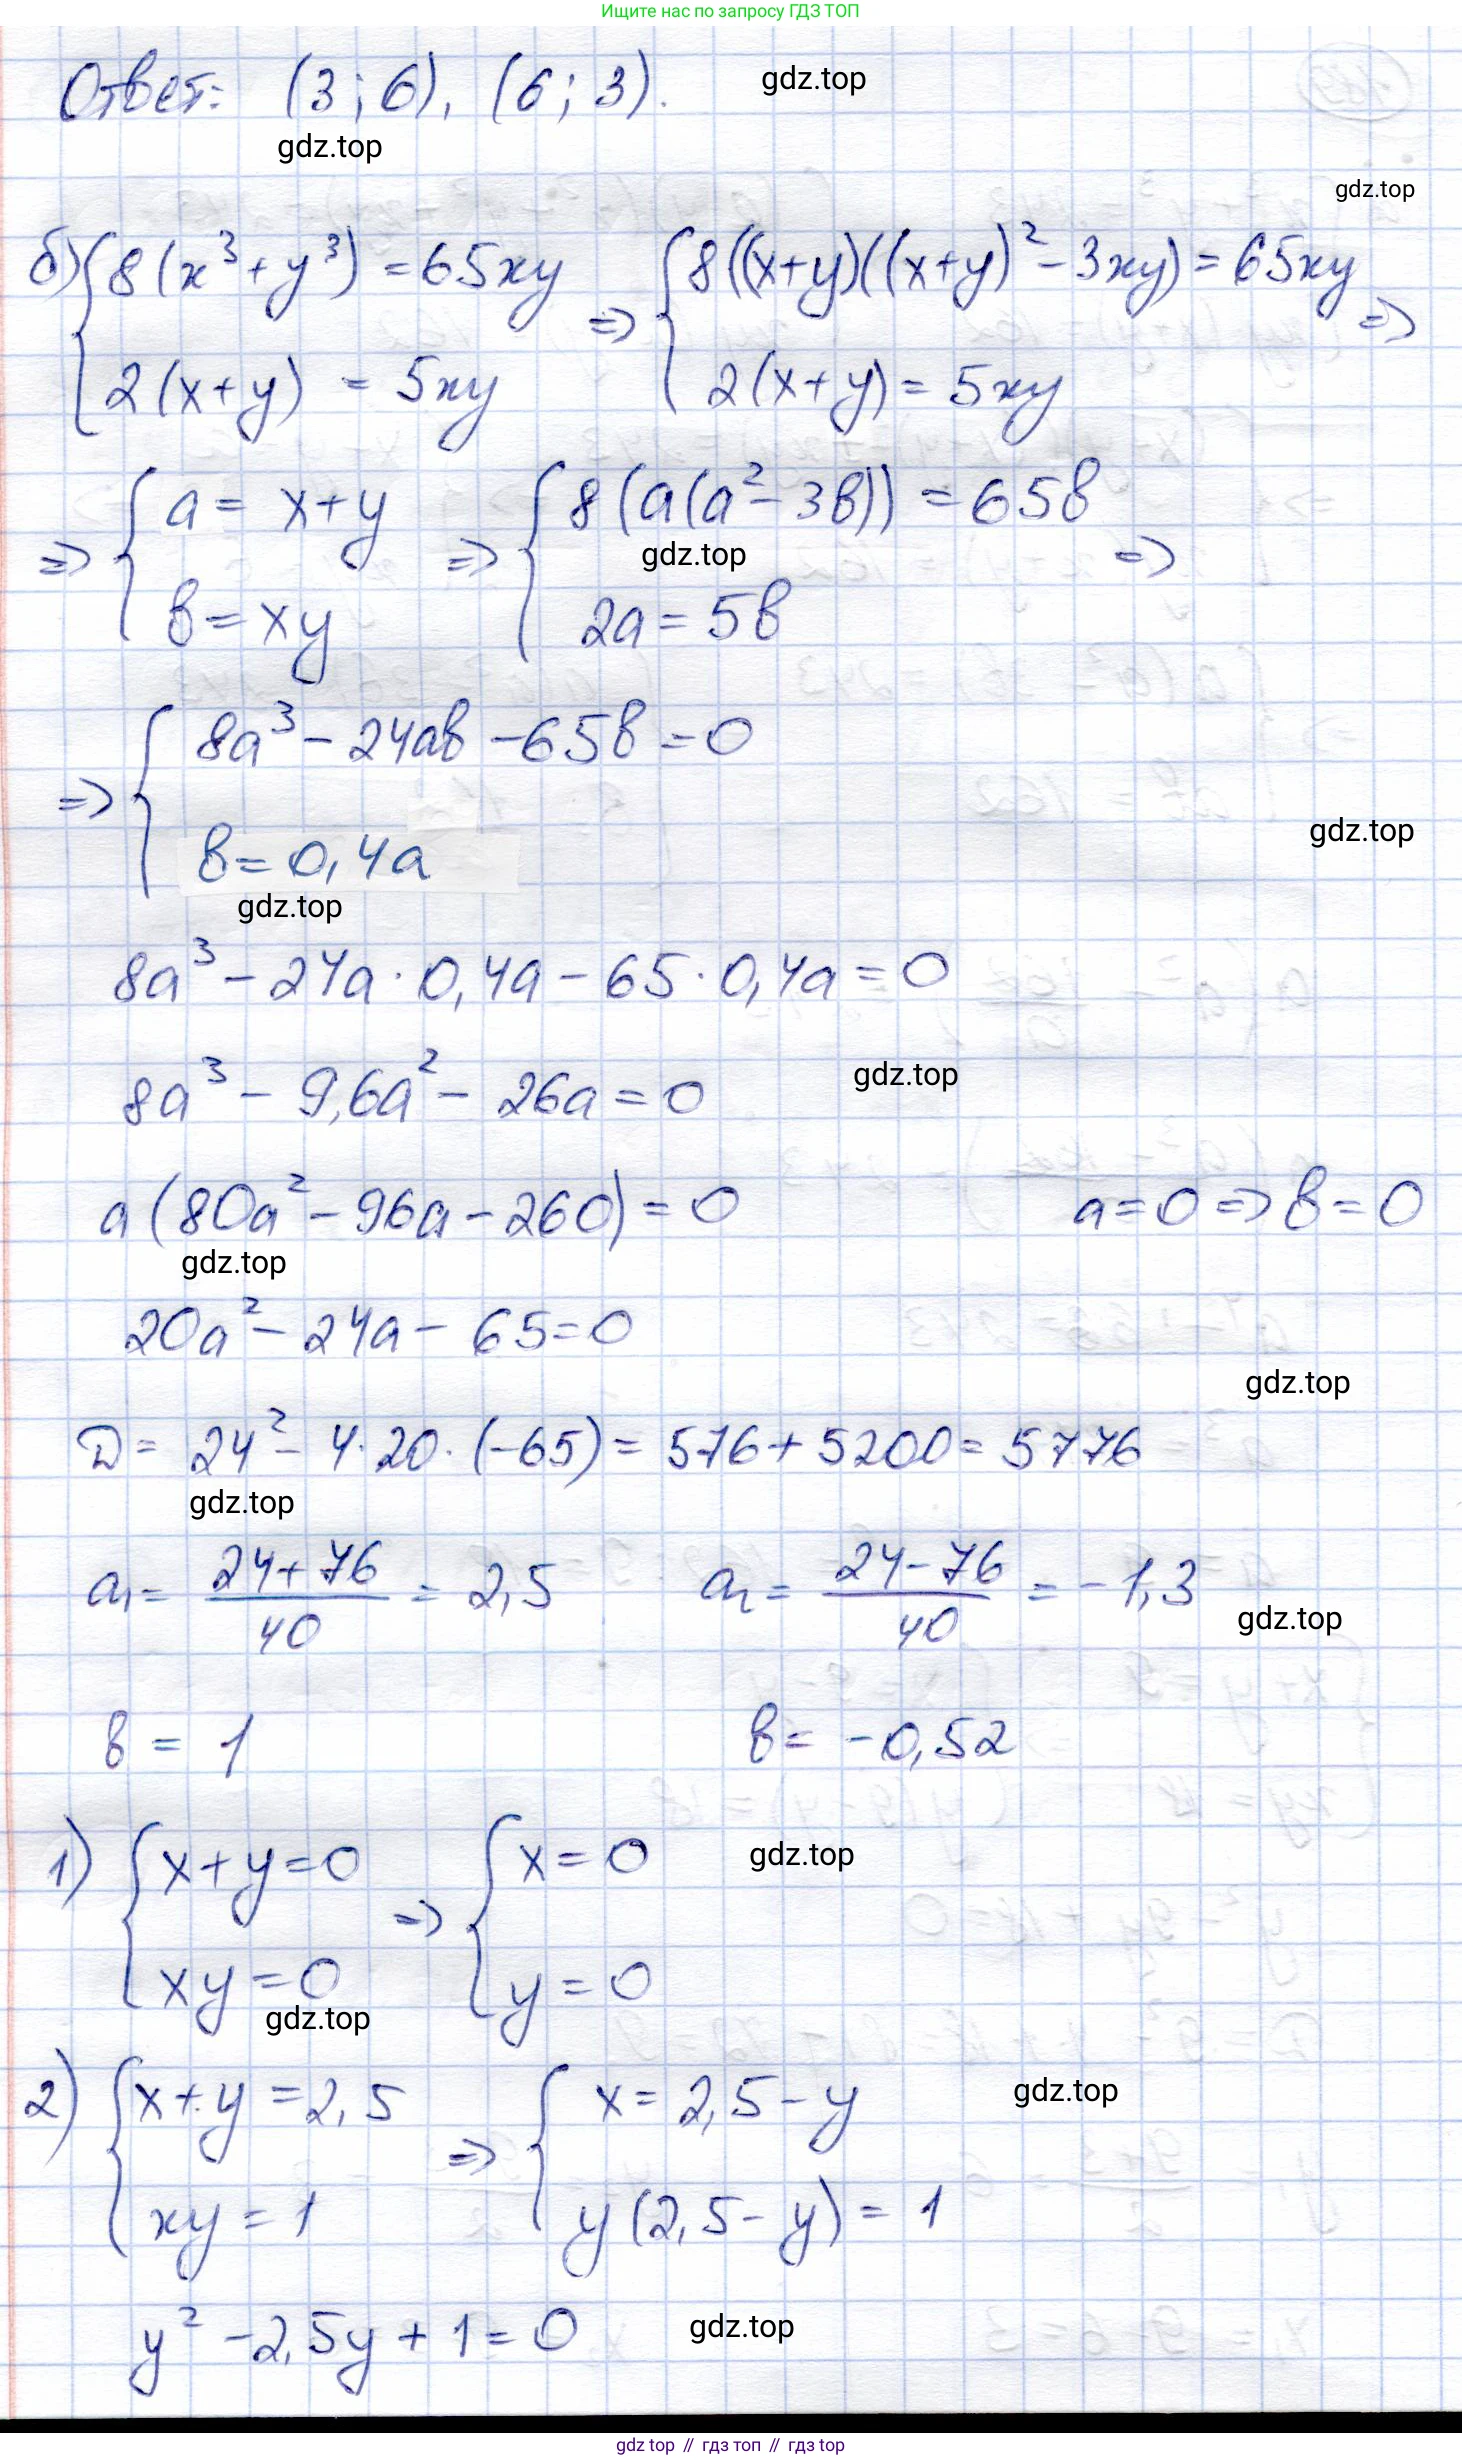 Ищите нас по запросу ГДЗ ТОП
Ответ: (3; 6), (6; 3).
gdz.top
gdz.top
gdz.top
б) { 8(x³+y³) = 65xy ⇒ { 8((x+y)((x+y)²-3xy) = 65xy ⇒
2(x+y) = 5xy 2(x+y) = 5xy
⇒ { a = x+y ⇒ { 8(a(a²-3b)) = 65b ⇒
gdz.top
b = xy 2a = 5b
⇒ { 8a³ - 24ab - 65b = 0
gdz.top
b = 0,4a
gdz.top
8a³ - 24a · 0,4a - 65 · 0,4a = 0
8a³ - 9,6a² - 26a = 0
gdz.top
a(80a² - 96a - 260) = 0 a = 0 ⇒ b = 0
gdz.top
20a² - 24a - 65 = 0
gdz.top
D = 24² - 4·20·(-65) = 576 + 5200 = 5776
gdz.top
a₁ = (24+76)/40 = 2,5 a₂ = (24-76)/40 = -1,3
gdz.top
b = 1 b = -0,52
1) { x+y=0 ⇒ { x=0
gdz.top
xy=0 y=0
gdz.top
2) { x+y=2,5 ⇒ { x=2,5-y
gdz.top
xy=1 y(2,5-y)=1
y² - 2,5y + 1 = 0
gdz.top
gdz top // гдз топ // гдз top